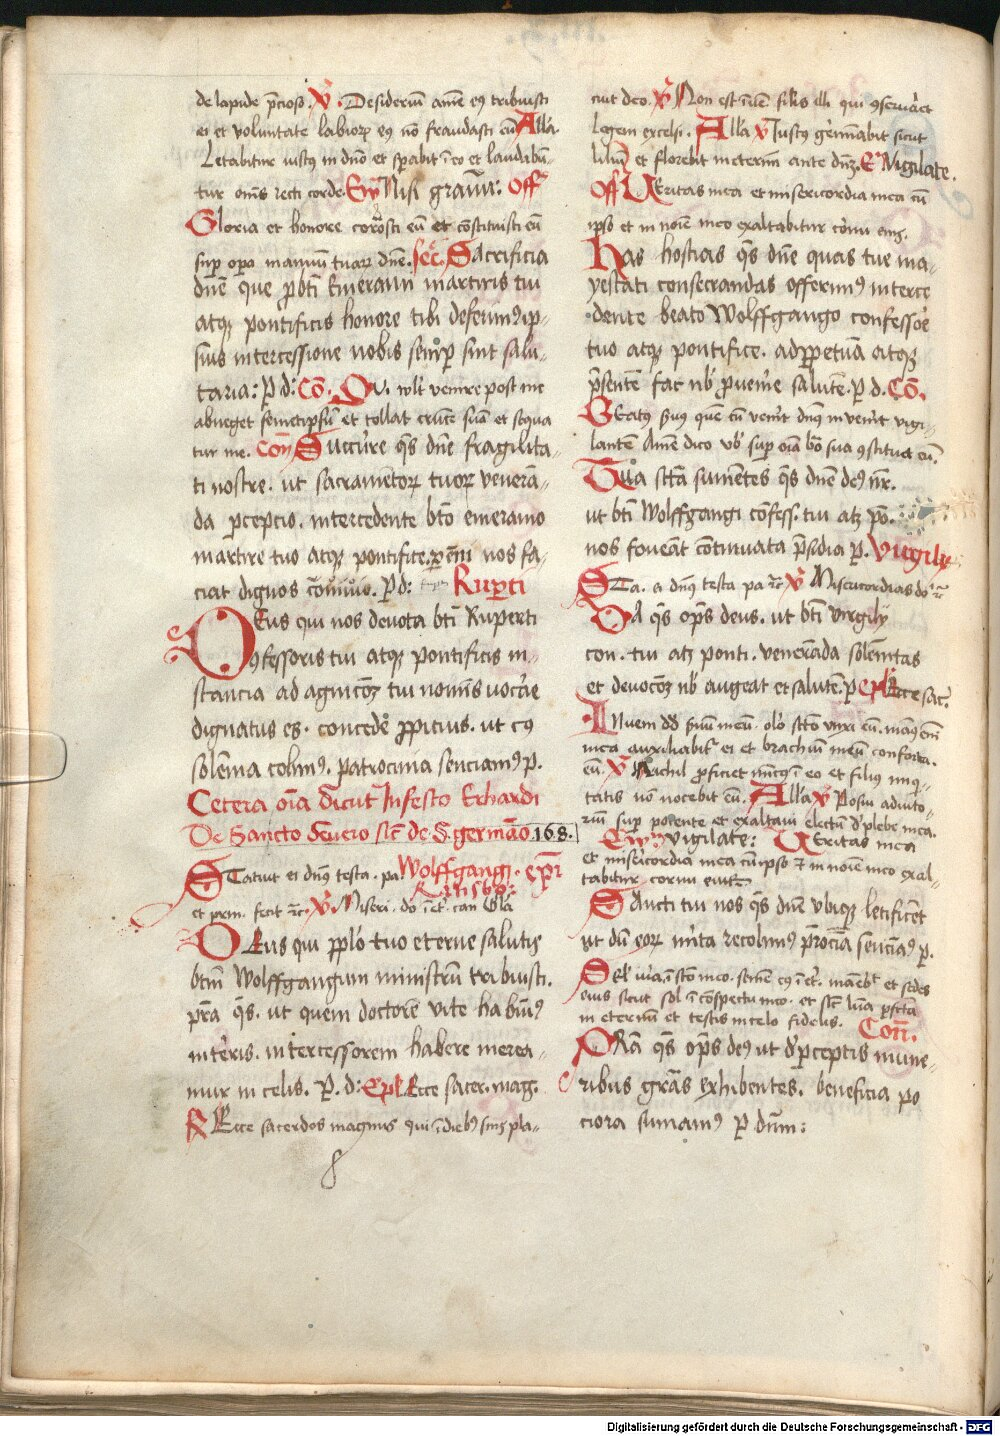 de lapide p̄cioso. V̄. Desideriū aīme eꝰ tribuisti
ei et voluntate labioꝝ eꝰ nō fraudasti eū All'a.
Letabitur iustꝰ in dn̄o et sp̄abit ī eo et laudabū-
tur om̄s recti corde. Ew̄ Nisi granū: Off̄
Gloria et honore coronasti eū et cōstituisti eū
sup̄ opa manuū tuaꝝ dn̄e. Sec̄. Sacrificia
dn̄e que p̄ bt̄i Emerami martiris tui
atqꝫ pontificis honore tibi deferimꝰ ip-
sius intercessione nobis semp̄ sint salu-
taria: P̄ d: Cō. Qui vult venire post me
abneget semetipsū et tollat crucē suā et sequa
tur me. Com̄ Succurre qs̄ dn̄e fragilita-
ti nostre. ut sacramētoꝝ tuoꝝ venerā-
da p̄ceptio. intercedente bt̄o emeramo
martire tuo atqꝫ pontifice. p̄ēni nos fa-
ciat dignos cōmunio. P̄ d: Rup̄ti
DEus qui nos devota bt̄i Ruperti
ꝯfessoris tui atqꝫ pontificis in-
stancia ad agnicōꝫ tui nominis vocare
dignatus es. concede p̄picius. ut cꝰ
solēnia colimꝰ. patrocinia senciamꝰ p̄.
Cetera oīa dicūt In festo Erhardi
De Sancto Severo sic̄ de S. germāo 168.
STatuit ei dn̄s testa. pa Wolffgangi. ep̄i
Ratisbo:
et prin. fecit ꝛc̄. V̄. Miseri. do. ī et̄. can Glā
DEus qui pplo tuo eterne salutis
btm̄ Wolffgangum ministrū tribuisti.
pr̄a qs̄. ut quem doctorē vite habuimꝰ
in terris. intercessorem habere merea-
mur in celis. P̄. d: Epl̄ Ecce sacer. mag.
R̄ Ecce sacerdos magnus qui ī diebꝰ suis pla-
cuit deo. V̄ Non est īuētꝰ silis illi qui ꝯservaret
legem excelsi. All'a V̄ Iustꝰ germinabit sicut
liliū et florebit in eternū ante dn̄ꝫ. Ew̄ Vigilate.
Off Veritas mea et misericordia mea cū
ipso et in noīe meo exaltabitur cornu eius.
Has hostias qs̄ dn̄e quas tue ma-
yestati consecrandas offerimꝰ interce
dente beato Wolffgango confessore
tuo atqꝫ pontifice. ad p̄petuā atqꝫ
p̄sentē fac nb̄ p̄uenire salutē. P̄ d. Cō.
BEatꝰ servus quē cū venerit dn̄s invenerit vigi-
lantē Amē dico vob' sup oīa bona sua ꝯstituet eū.
Tua sc̄tā sumētes qs̄ dn̄e deꝰ nr̄.
ut bt̄i Wolffgangi cōfess. tui atꝫ po.
nos foveāt cōtinuata p̄sidia p̄. Virgilii
STa. ei dn̄s testa pa ꝛc̄ V̄ Misericordias do ꝛc̄
DA qs̄ op̄s deus. ut bt̄i Virgilii
con. tui atꝫ ponti. veneranda solēnitas
et devocōꝫ nb̄ augeat et salutē. P̄ Epl̄ Ecce sac̄.
INveni dd servū meū. oleo scto unxi eū. manꝰ enī
mea auxiliabit̄ ei et brachiū meū confortabit
eū. V̄ Nichil proficiet inimicꝰ ī eo et filius iniq-
tatis nō nocebit eū. All'a V̄ Posui adiuto-
riū super potente et exaltavi electū d' plebe mea.
Ew̄ vigilate: Veritas mea
et misericordia mea cū ipso et in noīe meo exal-
tabitur cornu eius
SAncti tui nos qs̄ dn̄e ubiqꝫ letificēt
ut dū eoꝝ mīta recolimꝰ p̄rocīa senciamꝰ p̄.
SEl' iuravi ī scto meo. semē eꝰ ī et̄. maneb̄t et sedes
eius sicut sol ī cōspectu meo. et sic̄ luna p̄fecta
in eternū et testis in celo fidelis. Com̄.
PRā qs̄ op̄s deꝰ ut d' p̄ceptis mune-
ribus grās exhibentes. beneficia po
ciora sumamꝰ p̄ dn̄m:
Digitalisierung gefördert durch die Deutsche Forschungsgemeinschaft - DFG